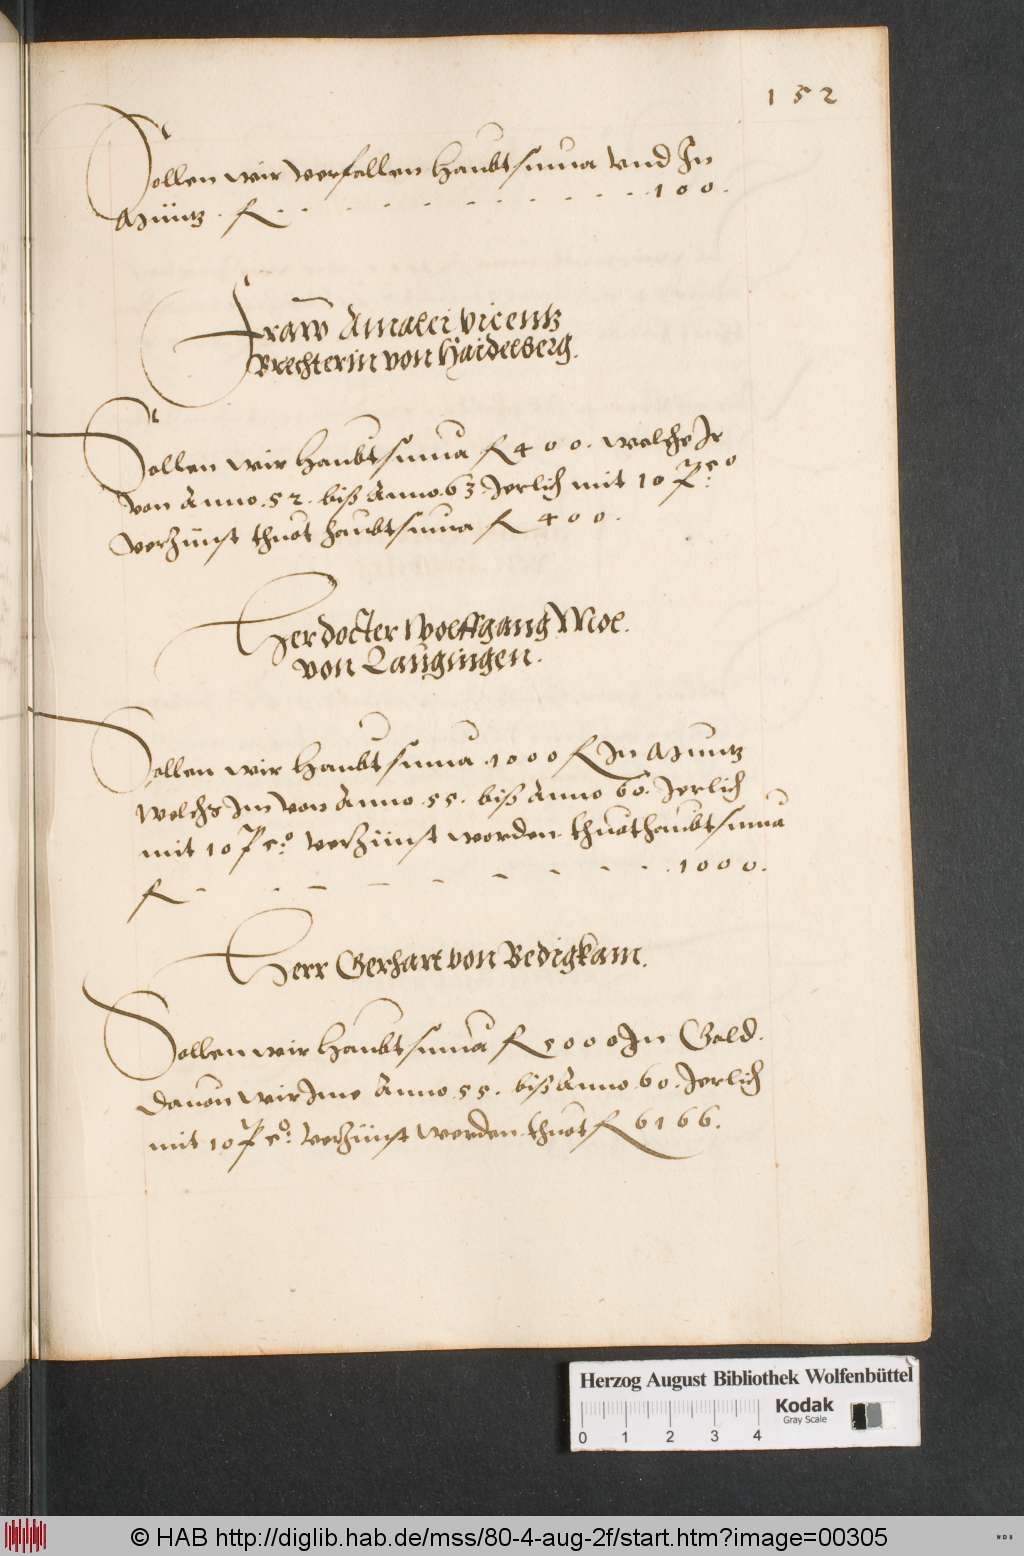 152
Sollen wir verfallen haubtsuma vnd In
Müntz . fl . . . . . . . . . . . 100.
Fraw Amalei Vicentz
Brechterin von Haidelberg.
Sollen wir haubtsuma fl 400. welche Ir
von Anno .52. biß Anno .63. Jerlich mit 10 p co
verzünst thuot haubtsuma fl 400.
Her docter Wolffgang Mol.
von Laugingen.
Sollen wir haubtsuma .1000 fl In Muntz
Welchs Im von Anno .55. biß Anno 60. Jerlich
mit 10 p co: verzünst worden thuot haubtsuma
fl - . - - - - - . . . 1000.
Herr Gerhart von Bedigkam.
Sollen wir haubtsuma fl 5000 In Gold.
dauon wir Ime Anno .55. biß Anno .60. Jerlich
mit 10 p co: verzünst worden thuot fl 6166.
Herzog August Bibliothek Wolfenbüttel
Kodak
Gray Scale
0 1 2 3 4
© HAB http://diglib.hab.de/mss/80-4-aug-2f/start.htm?image=00305